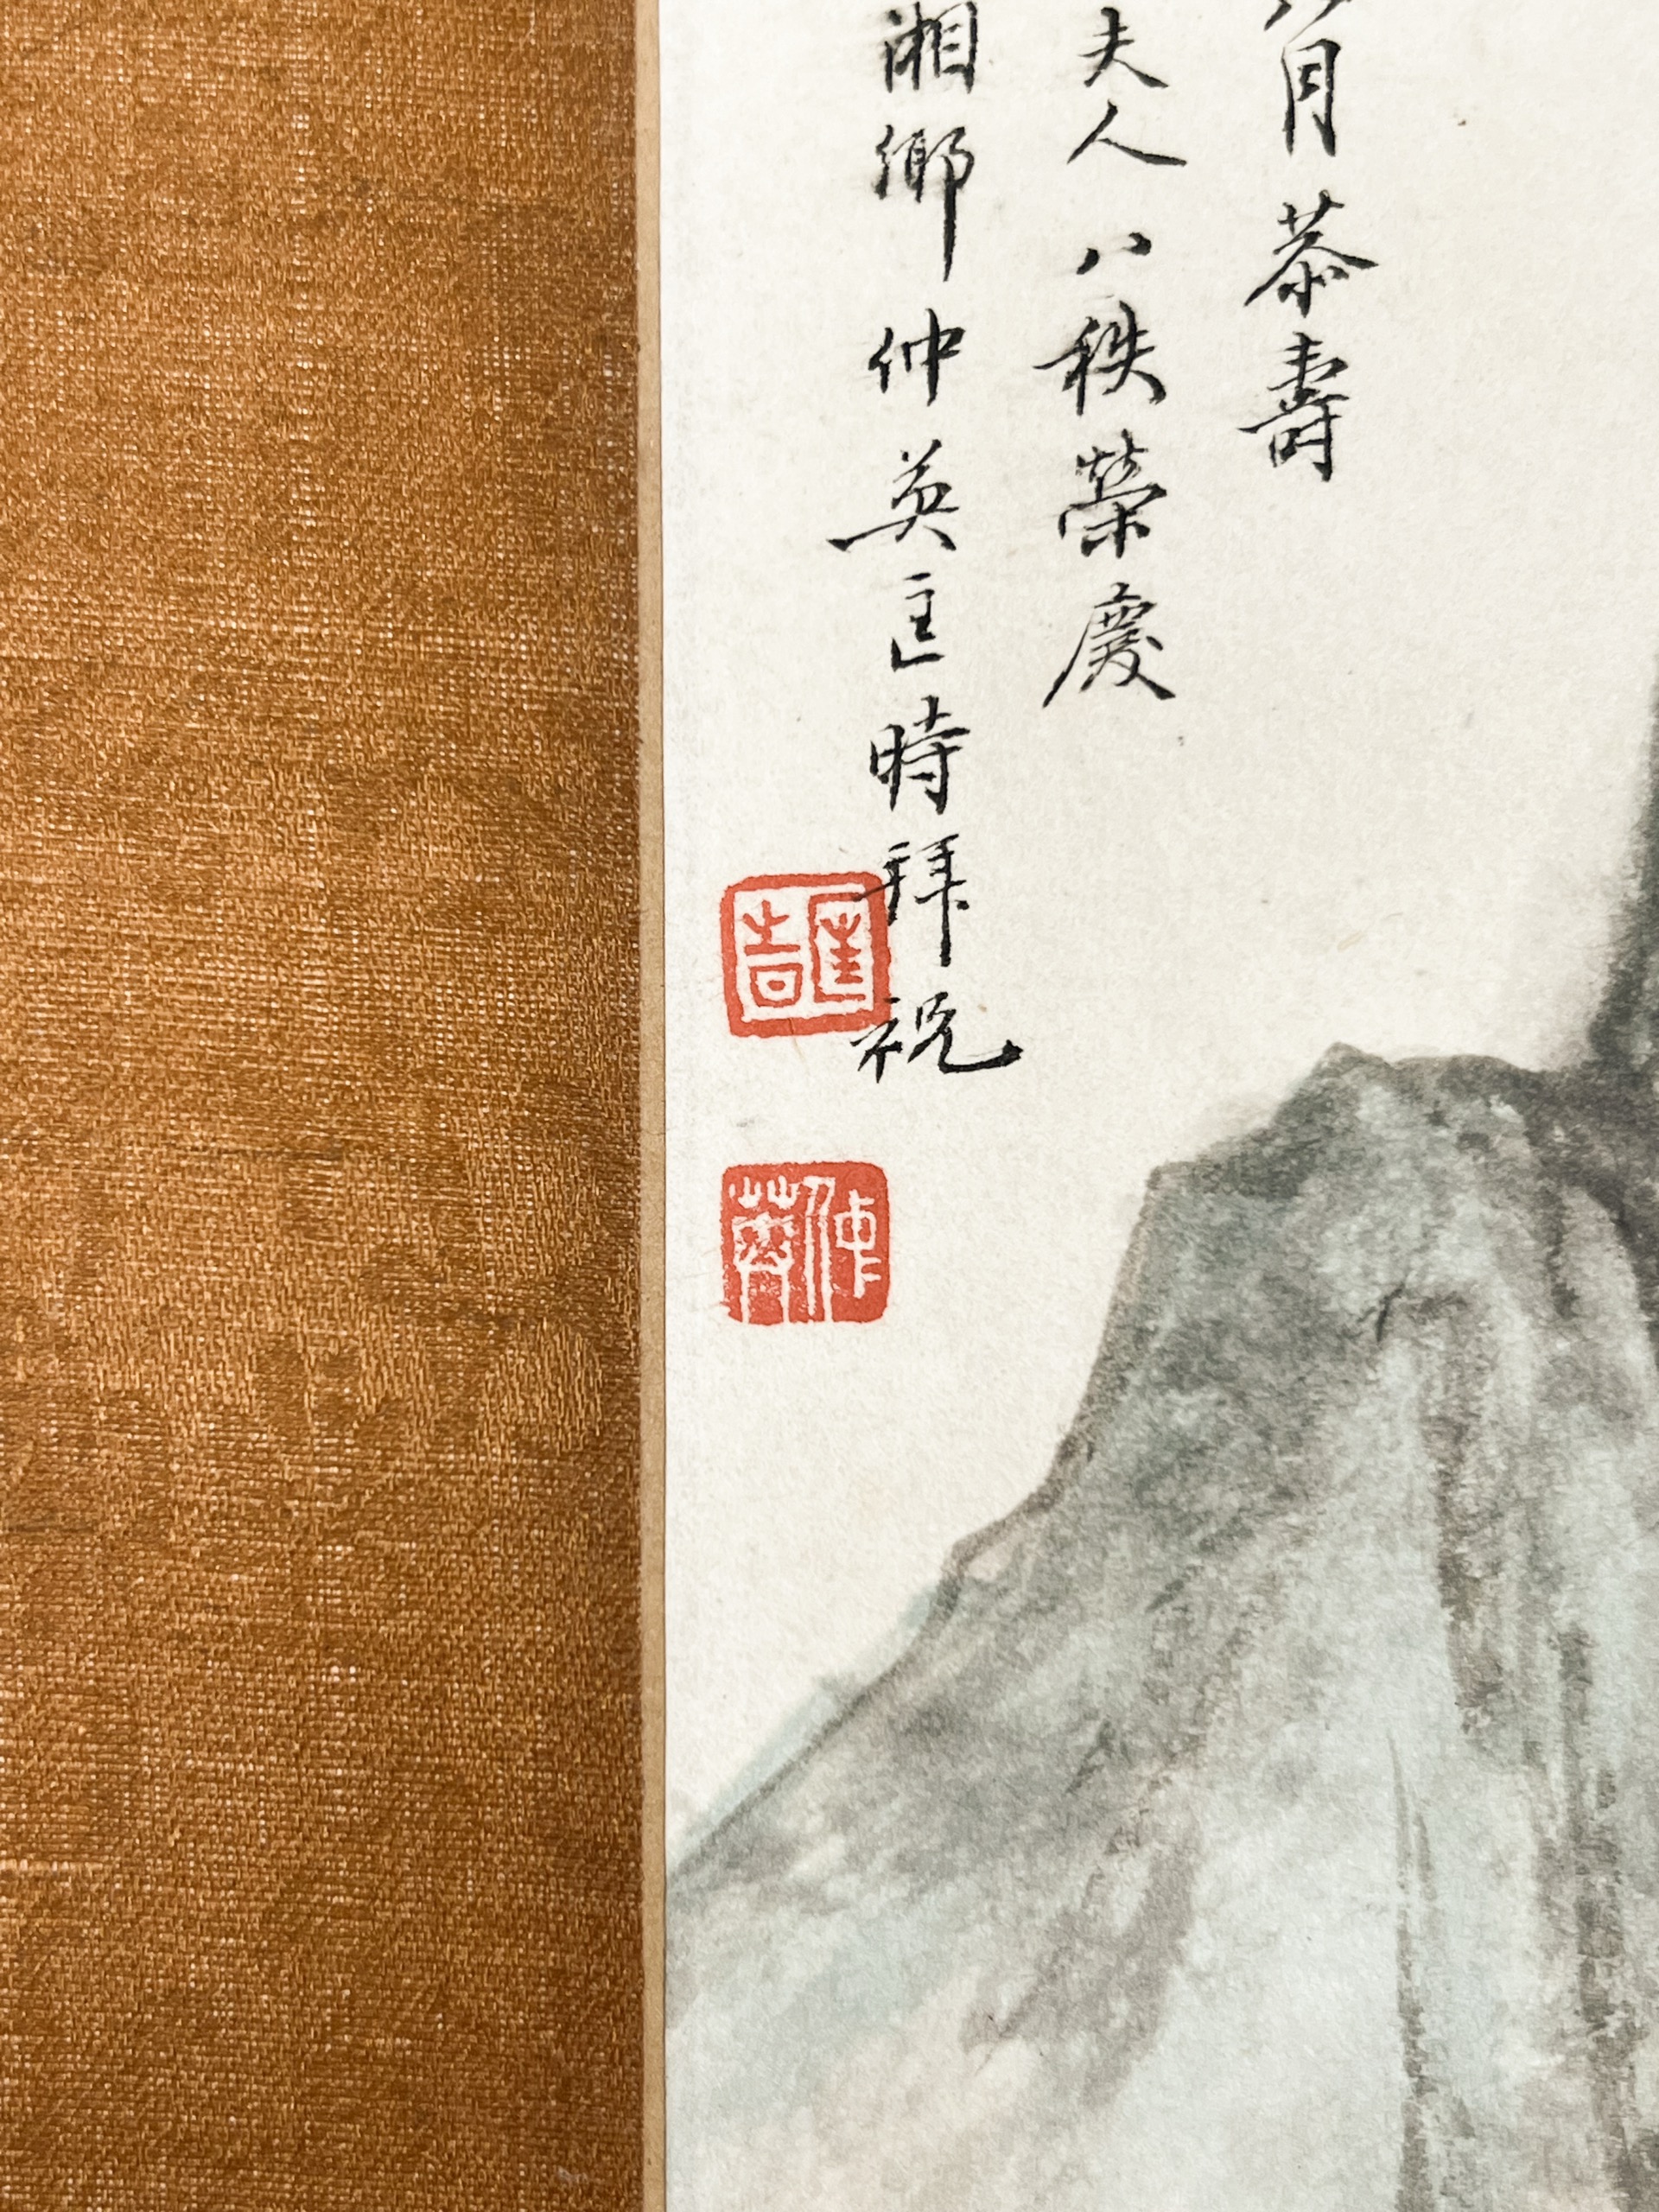 月恭壽
夫人八秩榮慶
湘鄉仲英匡時拜祝
匡時
仲英